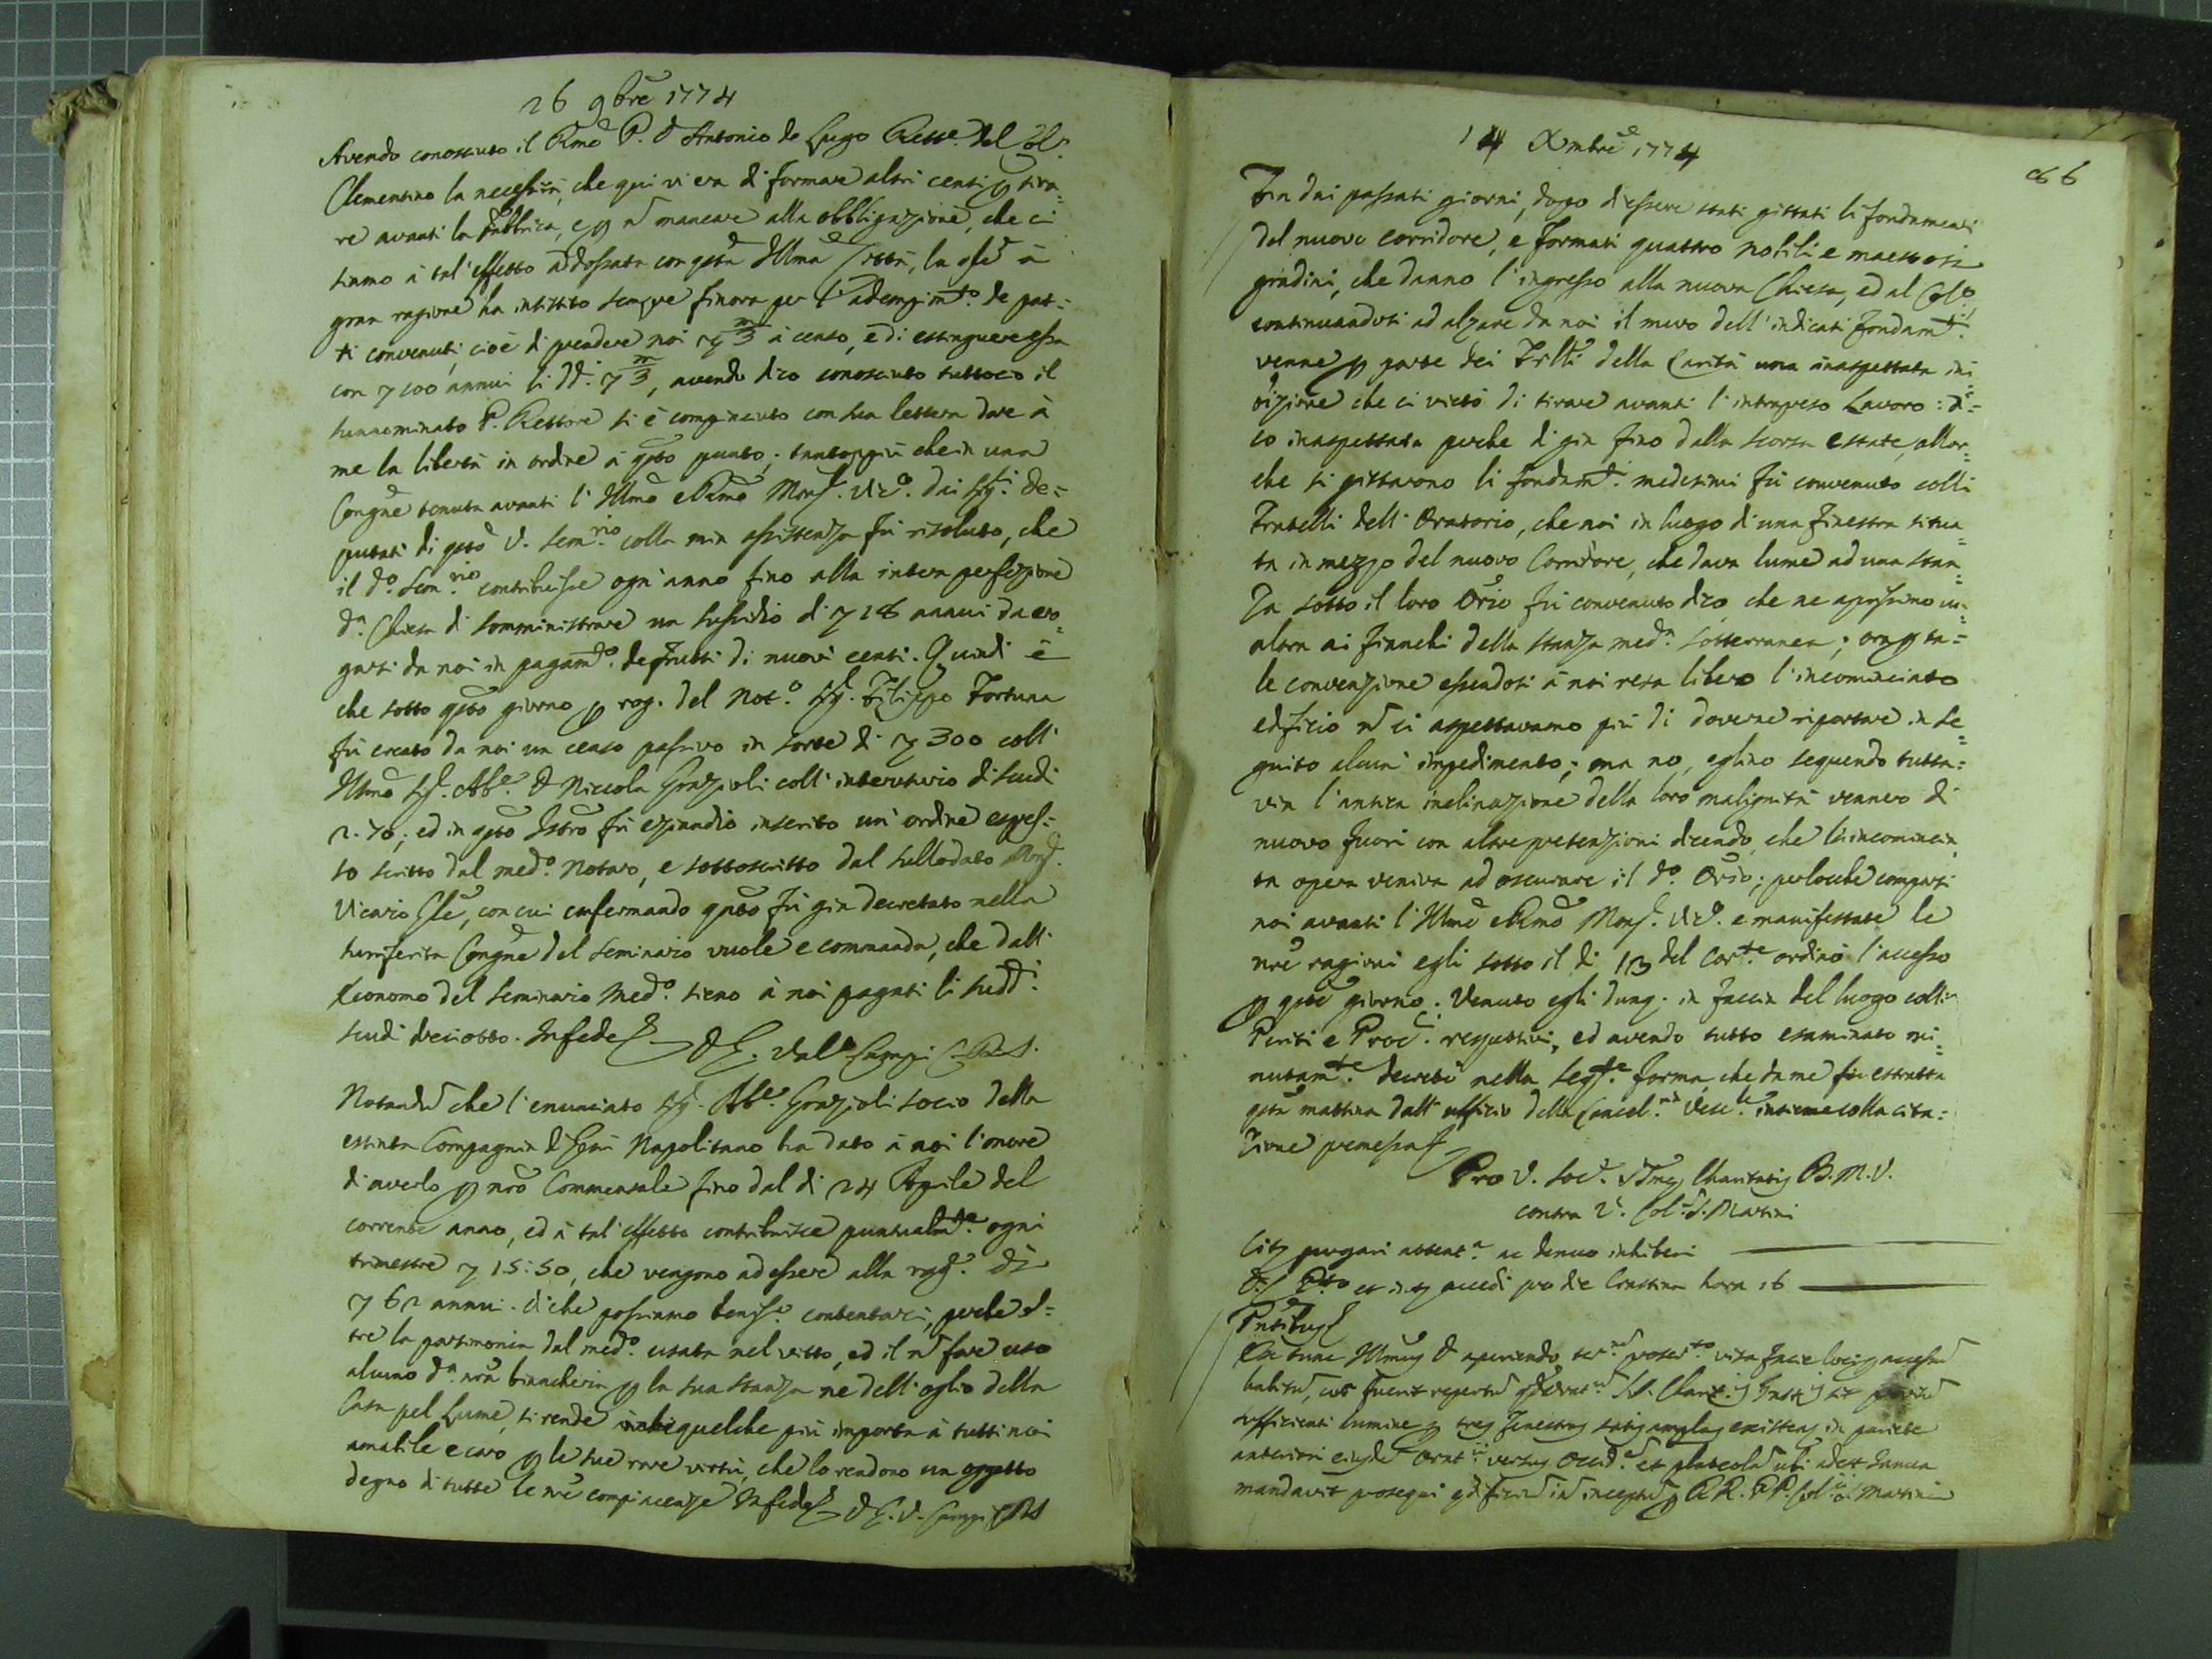 26 9bre 1774
Avendo conosciuto il Rmo P. D Antonio de Lugo Rettre del Col.
Clementino la necessità, che qui vi era di formare altri censi p tira=
re avanti la fabbrica, e p ñ mancare alla obbligazione, che ci
siamo à tal'effetto addossata con qsta Illma Città, la qle à
gran ragione ha insistito sempre finora per l'adempimto. de pat=
ti convenuti, cioè di prendere noi 3 m à censo, e di estinguere essa
con 100 annui li dd. 3 m, avendo dico conosciuto tuttociò il
sunnominato P. Rettore si è compiaciuto con sua lettera dare à
me la libertà in ordine à qsto punto; tantoppiù che in una
Congne tenuta avanti l'Illmo e Rmo Monsr. Vico. dai Sigri De=
putati di qsto V. Semrio. colla mia assistenza fù risoluto, che
il do. Semrio. contribuisse ogn'anno fino alla intera perfezione
da. Chiesa di somministrare un sussidio di 18 annui da ero=
garsi da noi in pagamto. de frutti di nuovi censi. Quindi è
che sotto qsto giorno p rog. del Noto. Sigr. Filippo Fortuna
fù creato da noi un censo passivo in sorte di 300 coll'
Illmo Sigr. Abe. D Niccola Grazioli coll'interusurio di scudi
2.70; ed in qsto Istro fù eziandio inserito un'ordine espres=
so scritto dal medo. Notaro, e sottoscritto dal sullodato Monsr.
Vicario Gle, con cui confermando quto fù già decretato nella
surriferita Congne del Seminario vuole e commanda, che dall'
Economo del Seminario Medo. sieno à noi pagati li sudti
scudi dieciotto. In fede
D G. Vale Campi C.R.S.
Notandũ che l'enunciato Sigr. Abe. Grazioli socio della
estinta Compagnia di Gesù Napolitano ha dato à noi l'onore
di averlo p nro Commensale fino dal di 24 Aprile del
corrente anno, ed à tal'effetto contribuisce puntualmte. ogni
trimestre 15:50, che vengono ad essere alla ragne. di
62 annui. di che possiamo beniss.o contentarci, perche ol=
tre la parsimonia dal medo. usata nel vitto, ed il ñ fare uso
alcuno da. nra biancheria p la sua stanza ne dell'oglio della
Casa pel Lume, si rende quelche più importa à tutti noi
amabile e caro p le sue rare virtù, che lo rendono un oggetto
degno di tutte le nre compiacenze In fede D G. V. Campi CRS
14 Xmbre 1774
86
Fin dai passati giorni, dopo di essere stati gittati li fondamenti
del nuovo corridore, e formati quattro nobili e maestosi
gradini, che danno l'ingresso alla nuova Chiesa, ed al Collo,
continuandosi ad alzare da noi il muro dell'indicati fondamti.
venne p parte dei Frlli della Carità una inaspettata ini=
bizione che ci vietò di tirare avanti l'intrapreso Lavoro: di=
co inaspettata perche di già fino dalla scorsa estate, allor=
che si gittarono li fondamti. medesimi fù convenuto colli
Fratelli dell'Oratorio, che noi in luogo di una finestra situa=
ta in mezzo del nuovo Corridore, che dava lume ad una stan=
za sotto il loro Orio fù convenuto dico, che ne aprissimo un=
altra ai fianchi della stanza meda. sotterranea; ora p ta=
le convenzione essendosi à noi resa libero l'incominciato
edificio ñ ci aspettavamo più di doverne riportare in se=
guito alcun'impedimento; ma no, eglino seguendo tutta=
via l'antica inclinazione della loro malignità vennero di
nuovo fuori con altre pretenzioni dicendo, che la incomincia
ta opera veniva ad oscurare il do. Orio; perlocche comparsi
noi avanti l'Illmo e Rmo Monsr. Vico. e manifestate le
nre ragioni egli sotto il di 13 del Corte. ordinò l'accesso
p qsto giorno. Venuto egli dunq. in faccia del luogo colli
Periti e Procri. respettivi, ed avendo tutto esaminato mi=
nutamte. decretò nella segte. forma, che da me fù estratta
qsta mattina dall'ufficio della Cancelria Vescle. insieme colla cita=
zione premessa
Pro V. Soc. Charitatis B.M.V.
contra V. Col. S. Martini
Citz purgari attenta. ac denuo inhiberi
et accedi pro die Crastina hora 16
Pntibus
Qui tunc Illmus D aperiendo visa facie loci p accessũ
habitũ, cũ fuerit repertũ Charitis sit
sufficienti lumine p tres fenestras satis amplas existens in pariete
anteriori eiusdẽ Oratii versus Occidẽ. et plateolã ubi adest Ianua
mandavit prosequi edificiũ inceptũ p RR. PP. Collii S. Martini